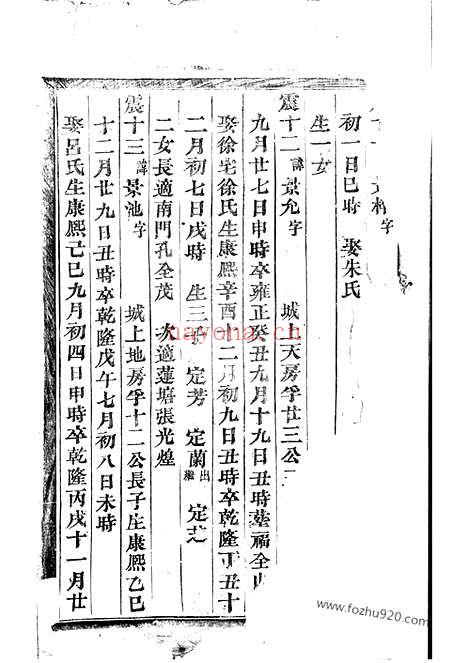 字
初一日巳時 娶朱氏
生一女
震十二 諱景允 字 城上天房孚廿三公
九月廿七日申時卒雍正癸丑九月十九日丑時葬福全山
娶徐宅徐氏生康熙辛酉十二月初九日丑時卒乾隆丁丑十
二月初七日戌時 生三子 定芳 定蘭出繼 定芝
二女長適南門孔全茂 次適蓮塘張光煌
震十三 諱景池 字 城上地房孚十二公長子生康熙乙巳
十二月廿九日丑時卒乾隆戊午七月初八日未時
娶呂氏生康熙己巳九月初四日申時卒乾隆丙戌十一月廿
nayona.cn
www.fozhu920.com